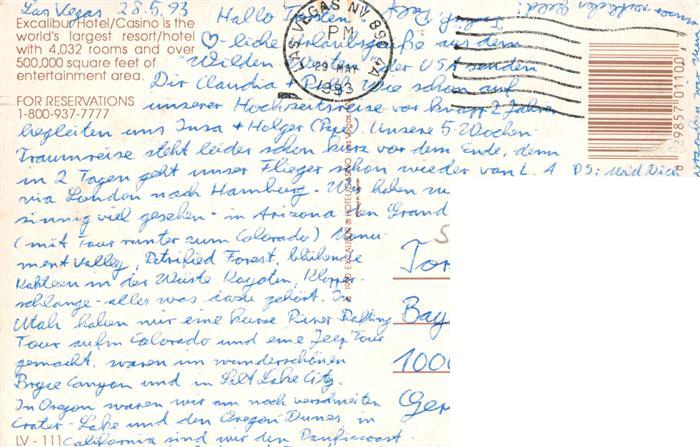 Las Vegas 28.5.93
Excalibur Hotel/Casino is the
world's largest resort/hotel
with 4,032 rooms and over
500,000 square feet of
entertainment area.
FOR RESERVATIONS
1-800-937-7777
Hallo
-liche Urlaubsgrüße aus dem
"Wilden der USA senden
Dir Claudia + Wie schon auf
unserer Hochzeitsreise vor knapp 2 Jahren
begleiten uns Insa + Holger Unsere 5-Wochen-
Traumreise steht leider schon kurz vor dem Ende, denn
in 2 Tagen geht unser Flieger schon wieder von L.A
via London nach Hamburg. Wir haben
sinnig viel gesehen - in Arizona den Grand
(mit Tour runter zum Colorado) Monu-
ment Valley, Petrified Forest, blühende
Kakteen in der Wüste Kojoten, Klapper-
schlange - alles was dazu gehört. In
Utah haben wir eine kurze River Rafting
Tour aufm Colorado und eine Jeep Tour
gemacht, waren im wunderschönen
Bryce Canyon und in Salt Lake City.
In Oregon waren wir am noch verschneiten
Crater-Lake und den Oregon Dunes, in
California sind wir den
LV - 111
LAS VEGAS NV 890
PM
29 MAY
1993
PS: Wird Dich
29857 01100
© 1990 EXCALIBUR HOTEL/CASINO
Tor
Bay
100
Ger